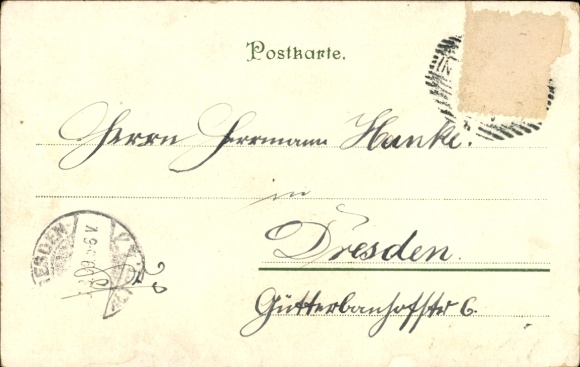 Postkarte.
Herrn Herrmann Hanke.
in
Dresden.
Gütterbanhofstr 6.
DRESDEN